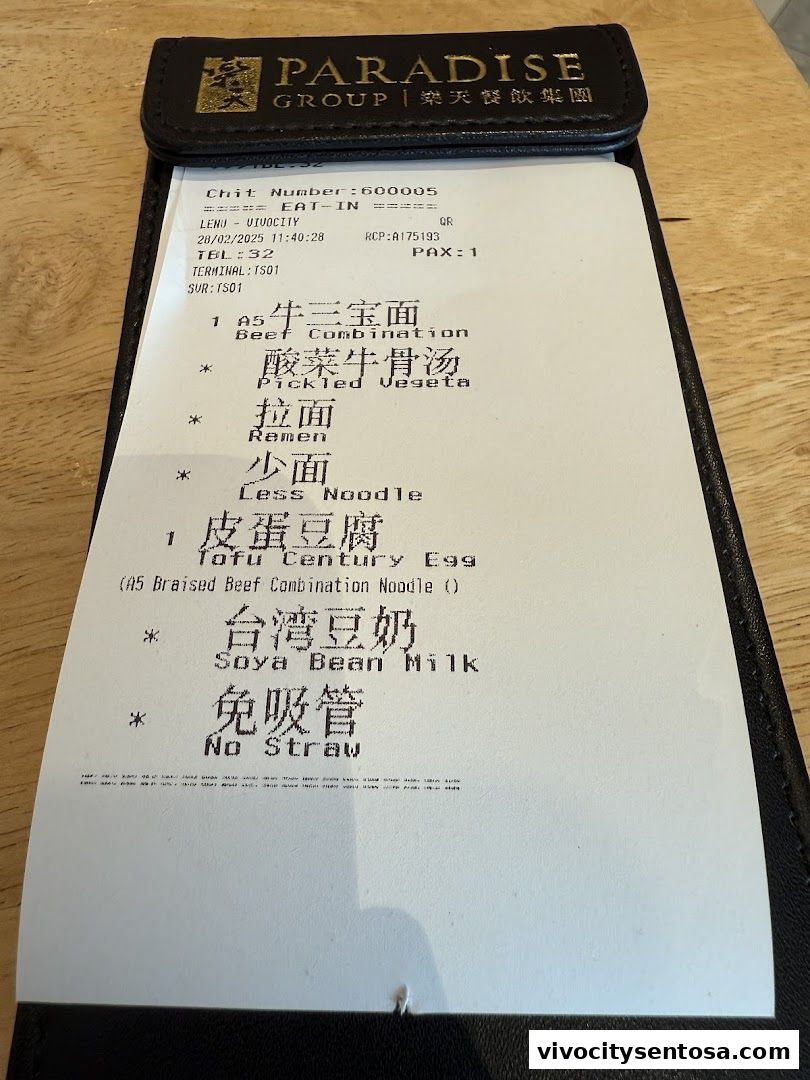 PARADISE
GROUP | 樂天餐飲集團
Chit Number:600005
===== EAT-IN =====
LENU - VIVOCITY QR
28/02/2025 11:40:28 RCP:A175193
TBL:32 PAX:1
TERMINAL:TS01
SVR:TS01
1 A5 牛三宝面
Beef Combination
* 酸菜牛骨汤
Pickled Vegeta
* 拉面
Ramen
* 少面
Less Noodle
1 皮蛋豆腐
Tofu Century Egg
(A5 Braised Beef Combination Noodle ()
* 台湾豆奶
Soya Bean Milk
* 免吸管
No Straw
vivocitysentosa.com